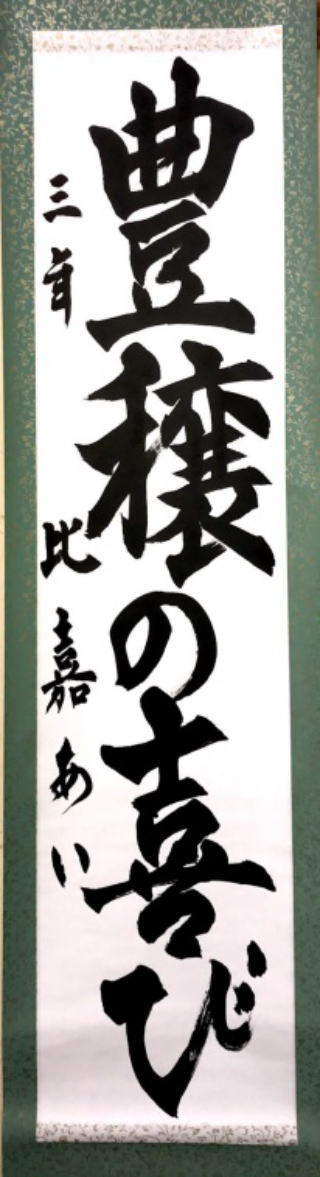 豊穣の喜び
三年 比嘉あい